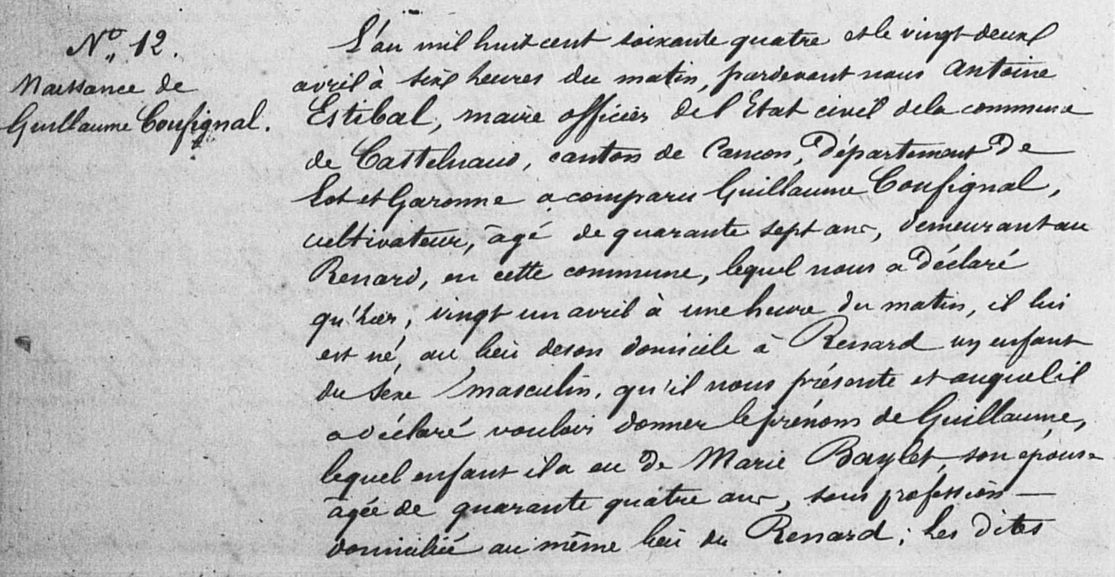 N° 12.
Naissance de
Guillaume Coufignal.
L'an mil huit cent soixante quatre et le vingt deux
avril à six heures du matin, pardevant nous Antoine
Estibal, maire officier de l'Etat civil de la commune
de Castelnaud, canton de Cancon, Département De
Lot et Garonne a comparu Guillaume Coufignal,
cultivateur, âgé de quarante sept ans, demeurant au
Renard, en cette commune, lequel nous a Déclaré
qu'hier, vingt un avril à une heure du matin, il lui
est né, au lieu de son domicile à Renard un enfant
du sexe masculin, qu'il nous présente et auquel il
a déclaré vouloir donner le prénom de Guillaume,
lequel enfant il a eu de Marie Baylet, son épouse
âgée de quarante quatre ans, sans profession —
domiciliée au même lieu du Renard ; Les dites